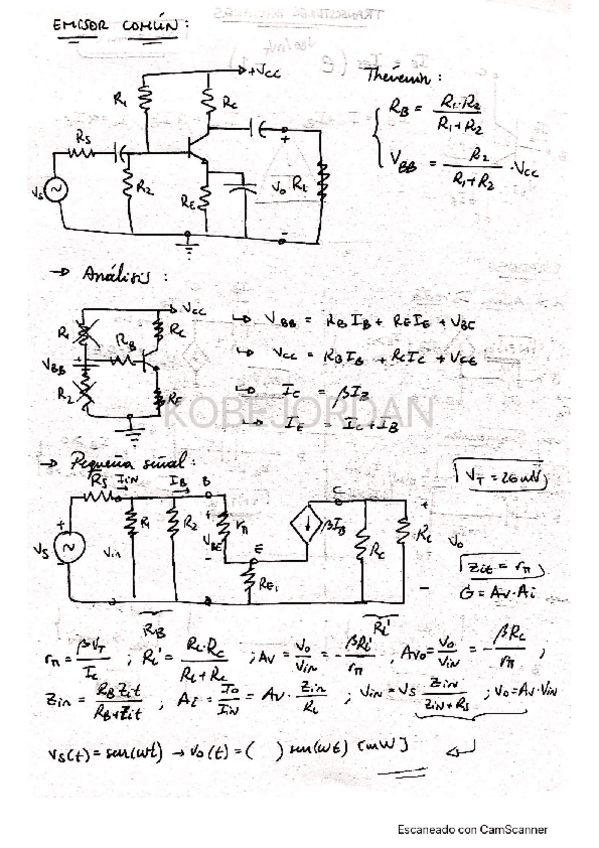 EMISOR COMÚN:
+VCC
Thévenin:
R1
RC
RB = R1·R2 / R1+R2
RS
VBB = R2 / R1+R2 · VCC
R2
VS
RE
Vo
RL
+
-
→ Análisis:
VCC
R1
RC
RB
VBB
R2
RE
↳ VBB = RBIB + REIE + VBC
↳ VCC = RBIB + RCIC + VCE
↳ IC = βIB
↳ IE = IC+IB
KOBEJORDAN
→ Pequeña señal:
VT = 26mV
RS
IiN
IB
B
C
+
VS
Vin
R1
R2
VBE
rπ
E
βIB
RC
RL
Vo
RE1
Zit = rπ
G = Av·Ai
RB
RL'
rπ = βVT / IC ; RL' = RL·RC / RL+RC ; Av = Vo / Vin = - βRL' / rπ ; Avo = Vo / Vin = - βRC / rπ ;
Zin = RB Zit / RB+Zit ; Ai = Io / IiN = Av · Zin / RL ; Vin = VS Zin / Zin+RS ; Vo = Av·Vin
VS(t) = sen(wt) → Vo(t) = ( ) sen(wt) [mW]
Escaneado con CamScanner